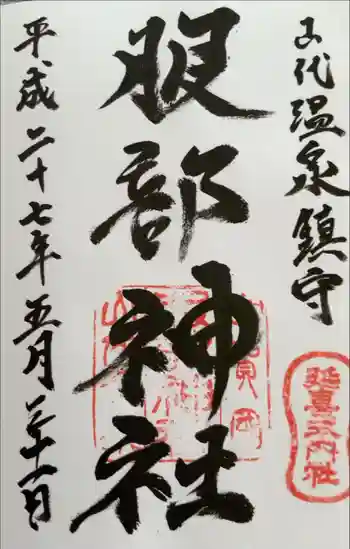 山代温泉鎮守
延喜式内社
服部神社
平成二十七年五月二十一日